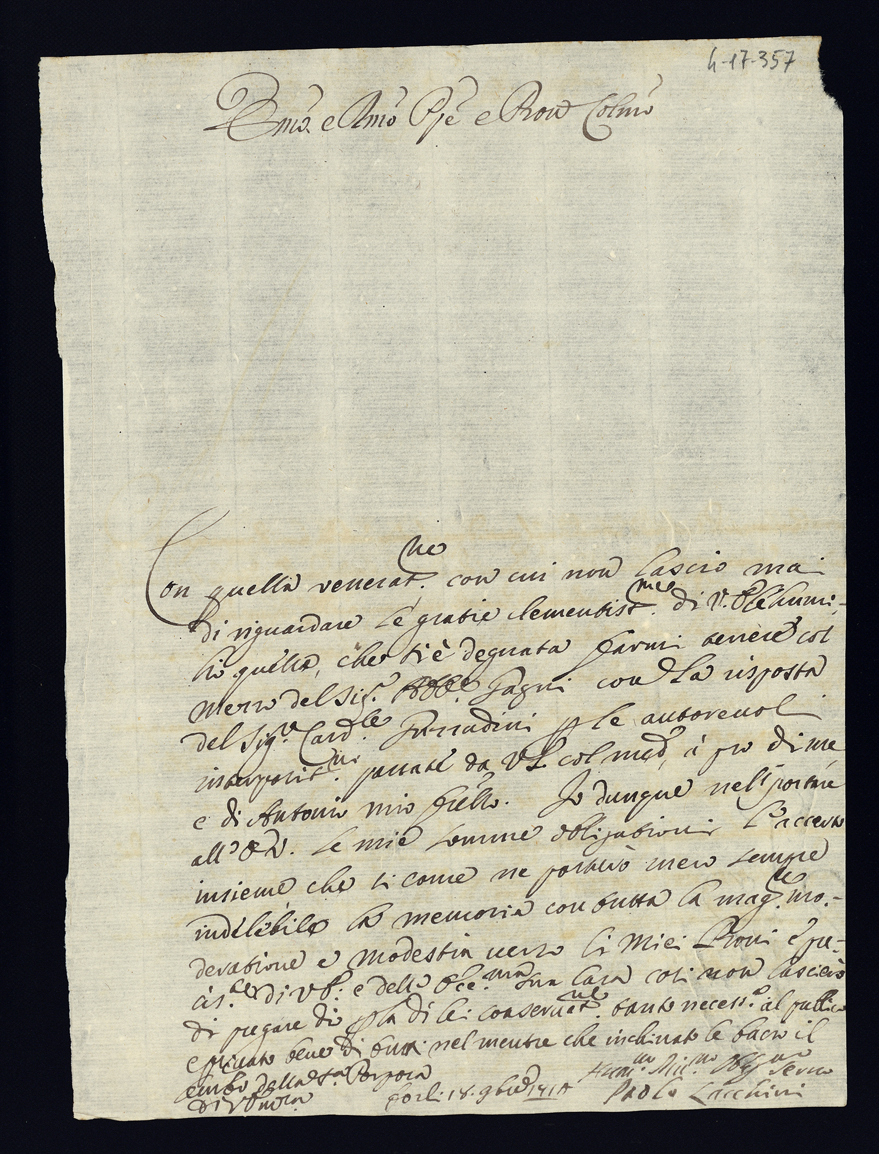 4-17-357
Emo. e Rmo Pñe e Prone Colmo
Con quella venerat.ne con cui non lascio mai
di riguardare le gratie clementiss.me di V. humi-
lio quella, che si è degnata farmi avere col
mezzo del Sig.r Abbe. Fagni con la risposta
del Sig.r Card.le le autorevoli
interposit.ni passate da col med.o à pro di me
e di Antonio mio frello. Io dunque nell'portare
all' le mie somme obligationi l'accerto
insieme che si come ne porterò meco sempre
indelebile la memoria con tutta la mag.re mo-
deratione e modestia verso li miei Proni
di e della sua Casa così non lascierò
di pregare Dio la di lei conservat.ne tanto necess.a al publico
e privato bene di tutti nel mentre che inchinato le bacio il
lembo della S.ra Porpora
di
Forli 18. 9bre
Hum.mo Obblig.mo Servo
Paolo